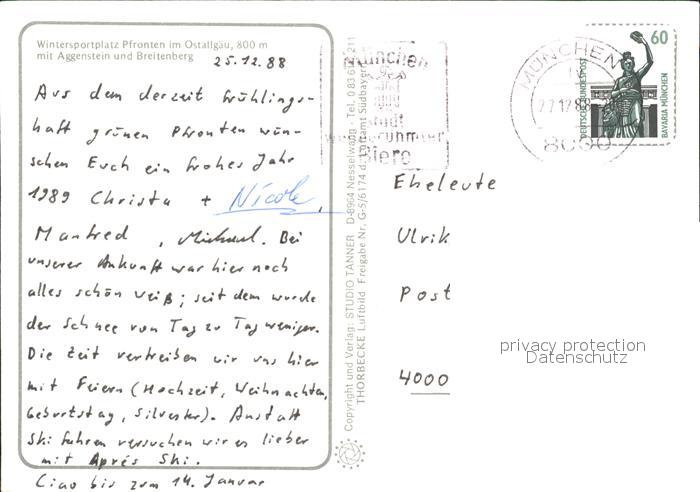 Wintersportplatz Pfronten im Ostallgäu, 800 m
mit Aggenstein und Breitenberg
25.12.88
Aus dem derzeit frühlings-
haft grünen Pfronten wün-
schen Euch ein frohes Jahr
1989 Christa + Nicole,
Manfred, Michael. Bei
unserer Ankunft war hier noch
alles schön weiß; seit dem wurde
der Schnee von Tag zu Tag weniger.
Die Zeit vertreiben wir uns hier
mit Feiern (Hochzeit, Weihnachten,
Geburtstag, Silvester). Anstatt
Ski fahren versuchen wir es lieber
mit Aprés Ski.
Ciao bis zum 14. Januar
Copyright und Verlag: STUDIO TANNER D-8964 Nesselwang
THORBECKE Luftbild Freigabe Nr. G-5/6174 d. Luftamt Südbayern
München
Stadt
weltberühmter
Biere
MÜNCHEN
8000
60
DEUTSCHE BUNDESPOST
BAVARIA MÜNCHEN
Eheleute
Ulrik
Post
4000
privacy protection
Datenschutz